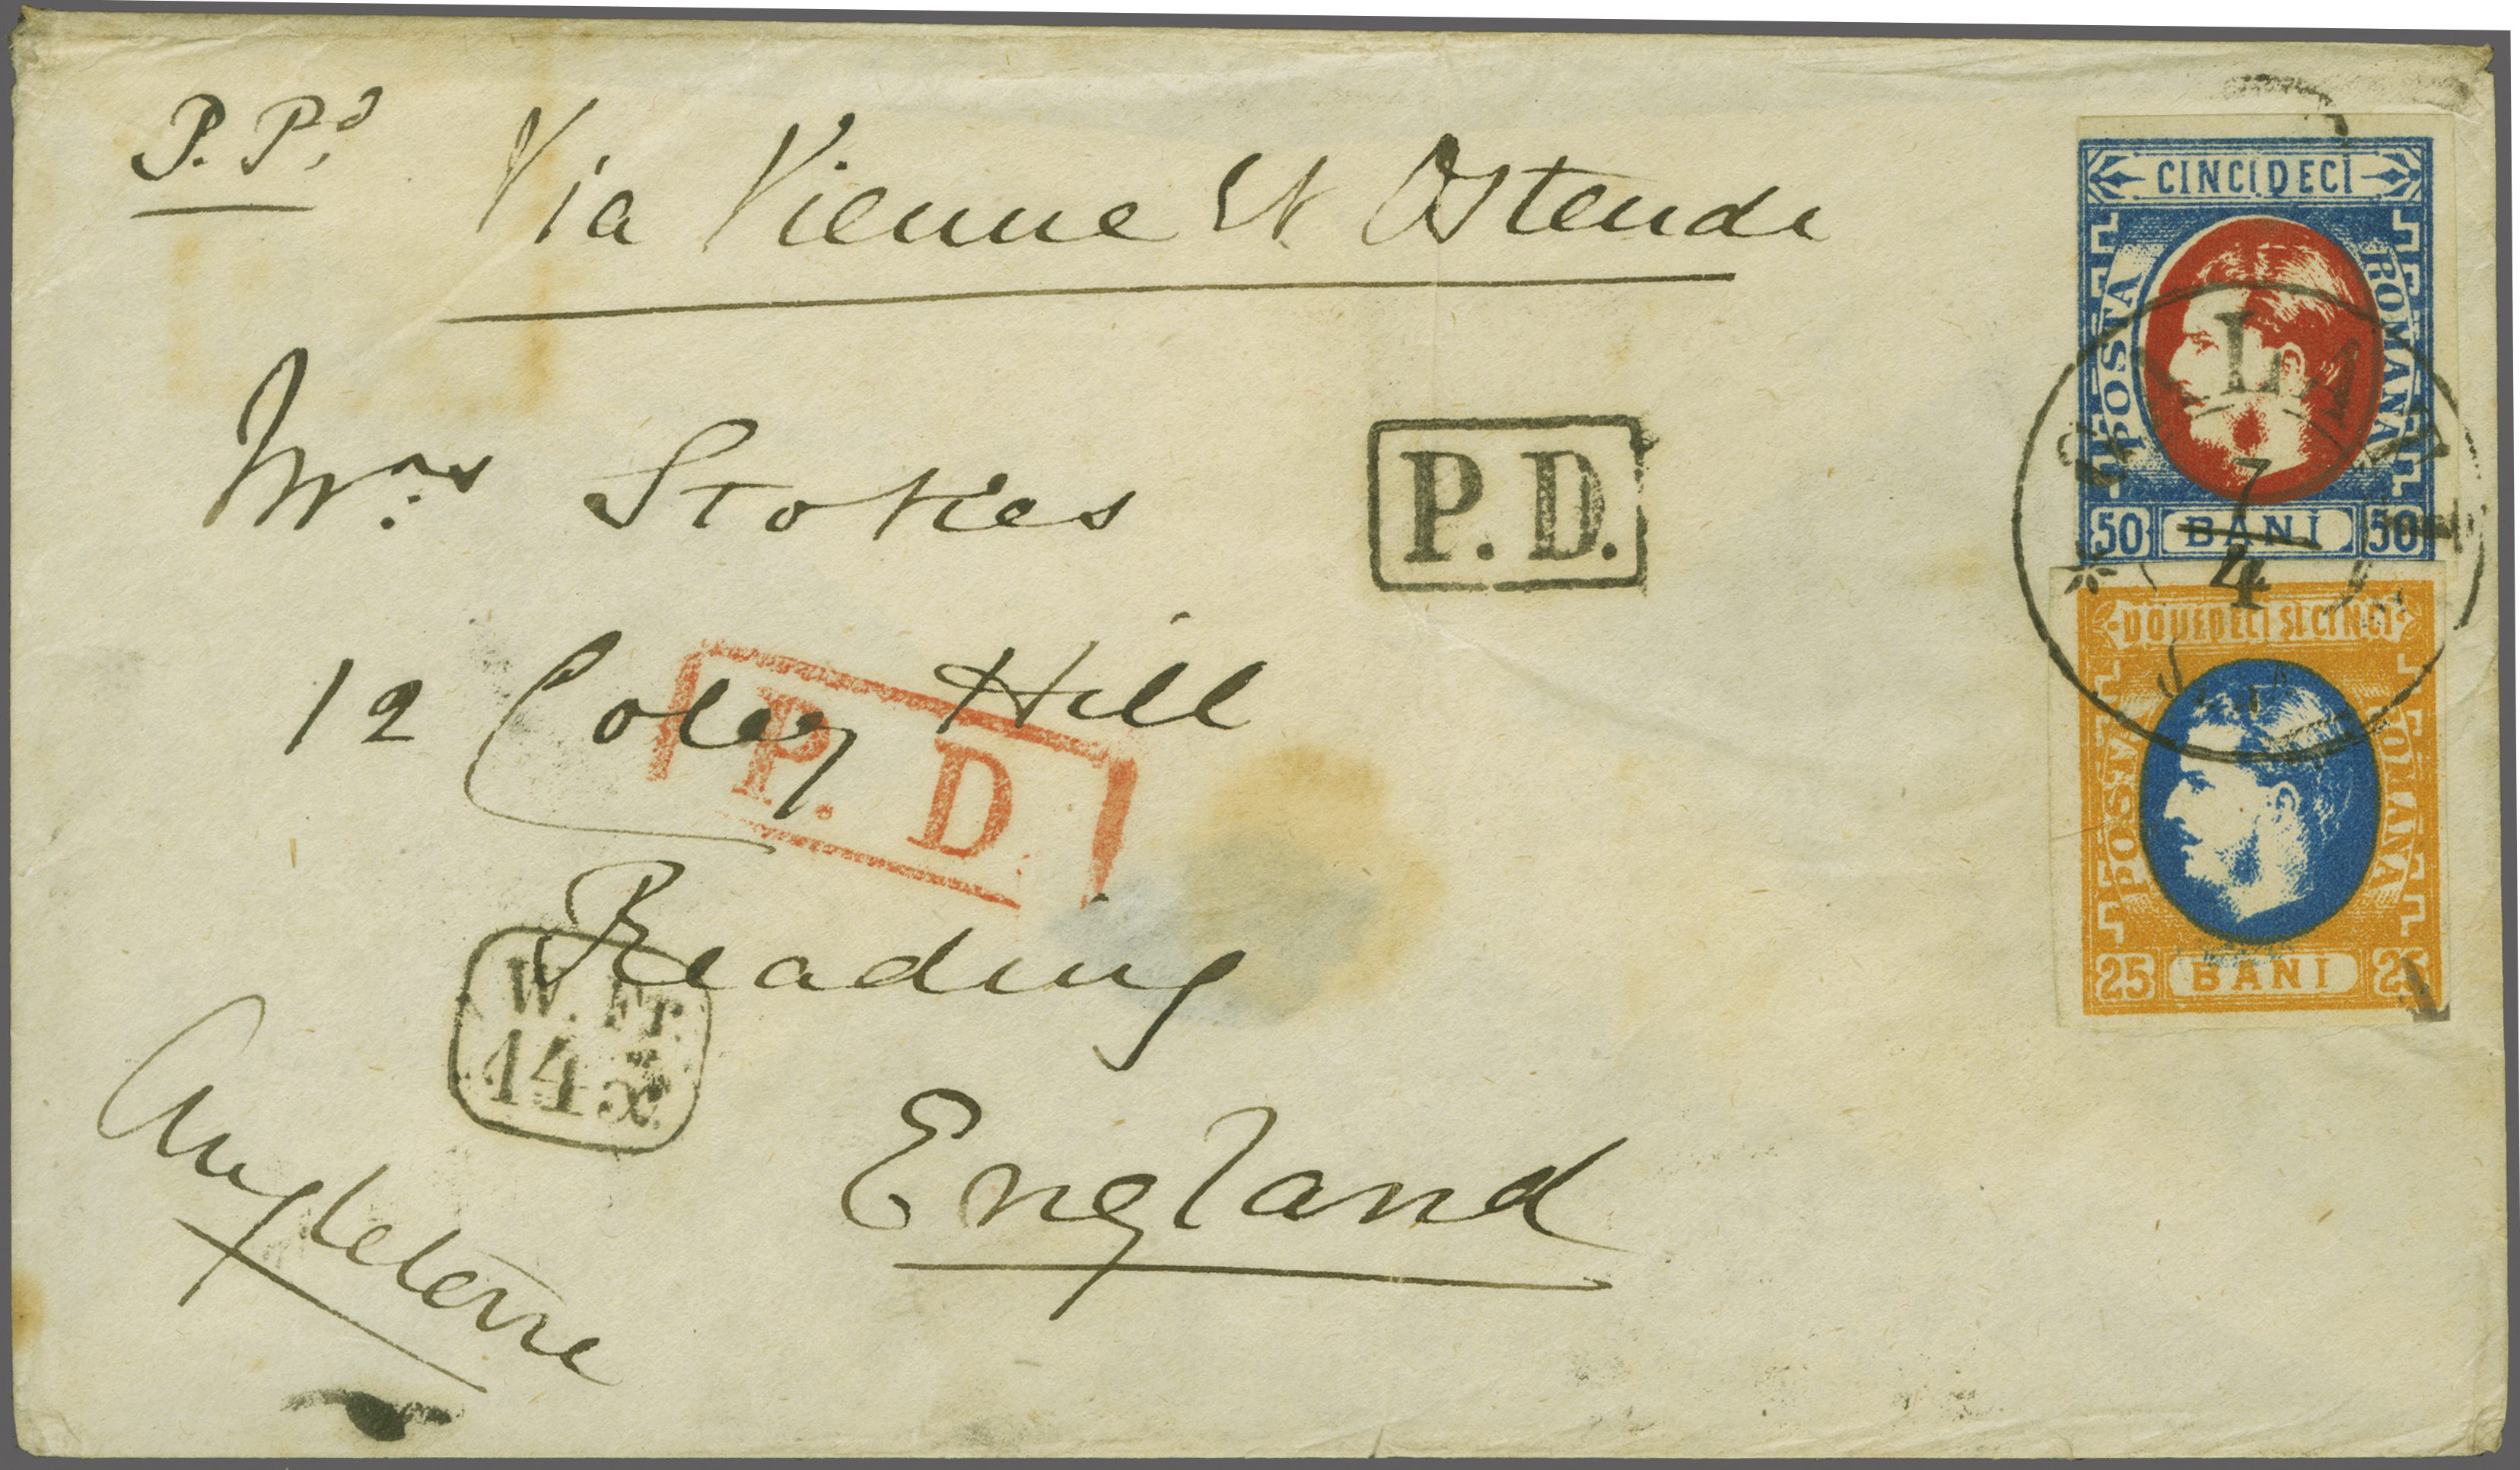 P. Pd. Via Vienne et Ostende
Mrs Stokes
12 Coley Hill
Reading
England
Angleterre
P.D.
P. D.
W. Fr.
14
CINCI DECI
POSTA
ROMANA
50 BANI 50
7
4
DOUEDECI SI CINCI
POSTA
ROMANA
25 BANI 25